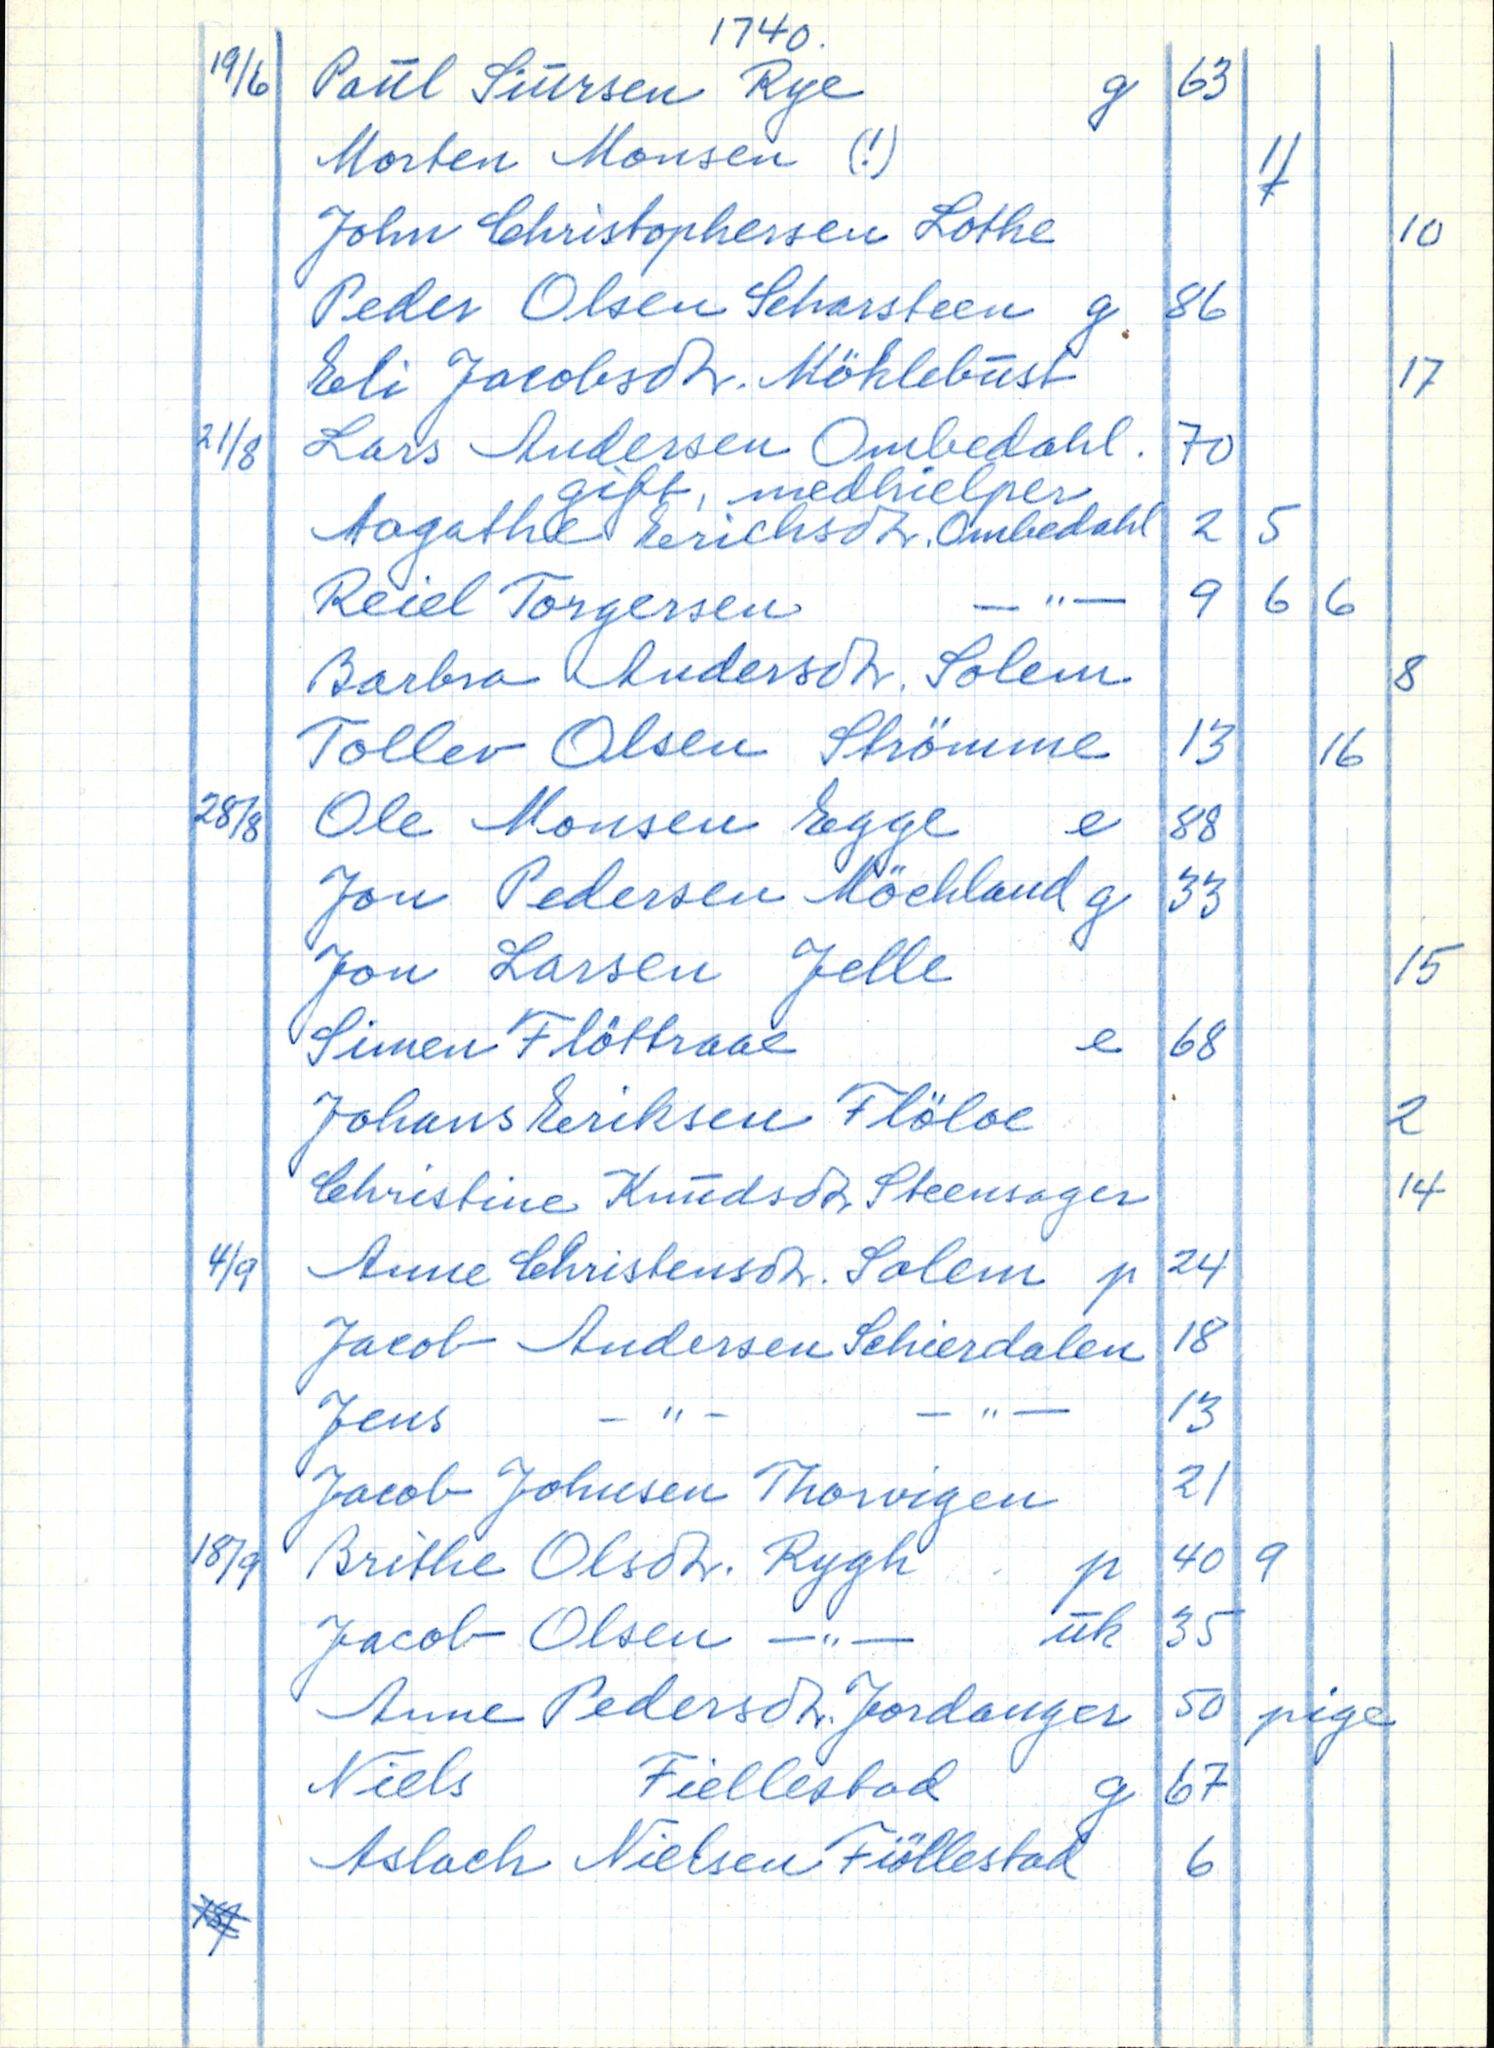 1740.
19/6 Paül Siürsen Rye g 63
Morten Monsen (!)
John Christophersen Lothe 10
Peder Olsen Scharsteen g 86
Eli Jacobsdtr. Möklebüst 17
21/8 Lars Andersen Ombedahl. 70
gift, medhielper
Aagathe Erichsdtr. Ombedahl 2 5
Reiel Torgersen —"— 9 6 6
Barbra Andersdtr. Solem 8
Tollev Olsen Strömme 13 16
28/8 Ole Monsen Egge e 88
Jon Pedersen Möchland g 33
Jon Larsen Jelle 15
Simen Flöttraae e 68
Johans Eriksen Flöloe 2
Christine Knüdsdtr Steensager 14
4/9 Anne Christensdtr. Solem p 24
Jacob Andersen Schierdalen 18
Jens -"- -"— 13
Jacob Johnsen Thorvigen 21
18/9 Brithe Olsdtr. Rygh p 40 9
Jacob Olsen —"— ük 35
Anne Pedersdtr. Jordanger 50 pige
Niels Fiellestad g 67
Aslach Nielsen Fiöllestad 6